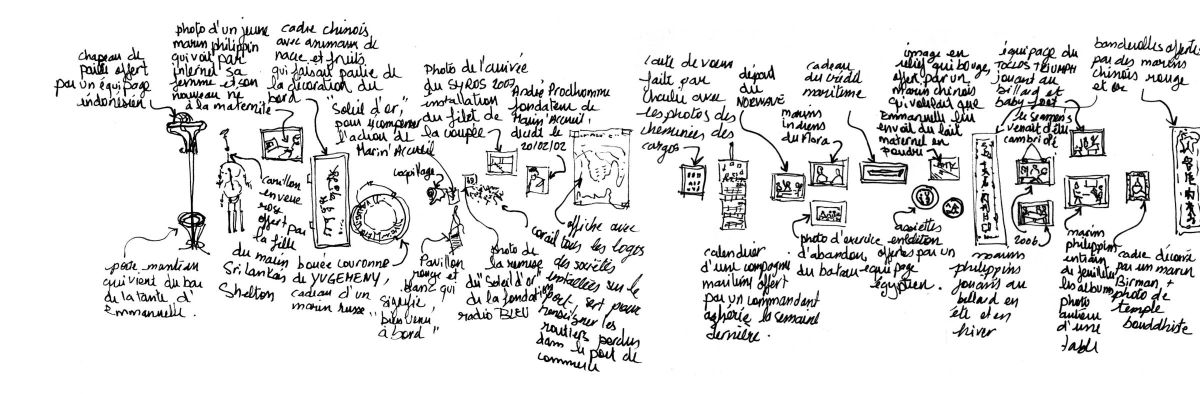 chapeau de
paille offert
par un équipage
indonésien
photo d'un jeune
marin philippin
qui voit par
internet sa
femme et son
nouveau né
à la maternité
cadre chinois
avec animaux de
nacre et fruits
qui faisait partie de
la décoration du
bord
"Soleil d'or",
pour récompenser
l'action de
Marin'Accueil
photo de l'arrivée
du SYROS 2002
installation
du filet de
la coupée
André Prodhomme
fondateur de
Marin'Accueil,
décédé le
20/02/02
coquillage
porte-manteau
qui vient du bar
de la tante d'
Emmanuelle.
carillon
en verre
rose
offert par
la fille
du marin
Sri Lankais
Shelton
bouée couronne
de YVGEHENY,
cadeau d'un
marin russe
Pavillon
rouge et
blanc qui
signifie
"bienvenue
à bord"
photo de
la remise
du "Soleil d'or"
de la fondation
radio BLEU
corail
affiche avec
tous les logos
des sociétés
installées sur le
port, sert pour
renseigner les
routiers perdus
dans le port de
commerce
carte de voeux
faite par
Charlie avec
les photos des
cheminées des
cargos
départ
du
NORWAVE
cadeau
du
maritime
marins
indiens
du Flora
image en
relief qui bouge,
offert par un
marin chinois
qui voulait que
Emmanuelle lui
envoit du lait
maternel en
poudre
équipage du
TOLLOS TRIUMPH
jouant au
billard et
baby foot
le seamen's
venait d'être
cambriolé
banderolles offertes
par des marins
chinois rouge
et or
calendrier
d'une compagnie
maritime offert
par un commandant
la semaine
dernière.
photo d'exercice
d'abandon
du bateau
assiettes en laiton
offertes par un
équipage
égyptien.
marins
philippins
jouant au
billard en
été et en
hiver
2006
marins
philippins
entrain
de feuilleter
les albums
photo
autour
d'une
table
cadre décoré
par un marin
Birman +
photo de
temple
bouddhiste